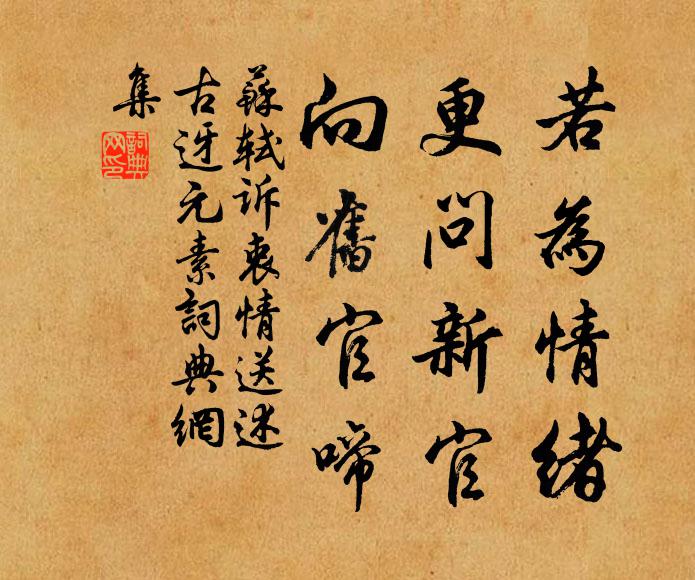 若為情緒
更問新官
向舊官啼
蘇軾訴衷情送述
古迓元素詞典網
集
詞典網印